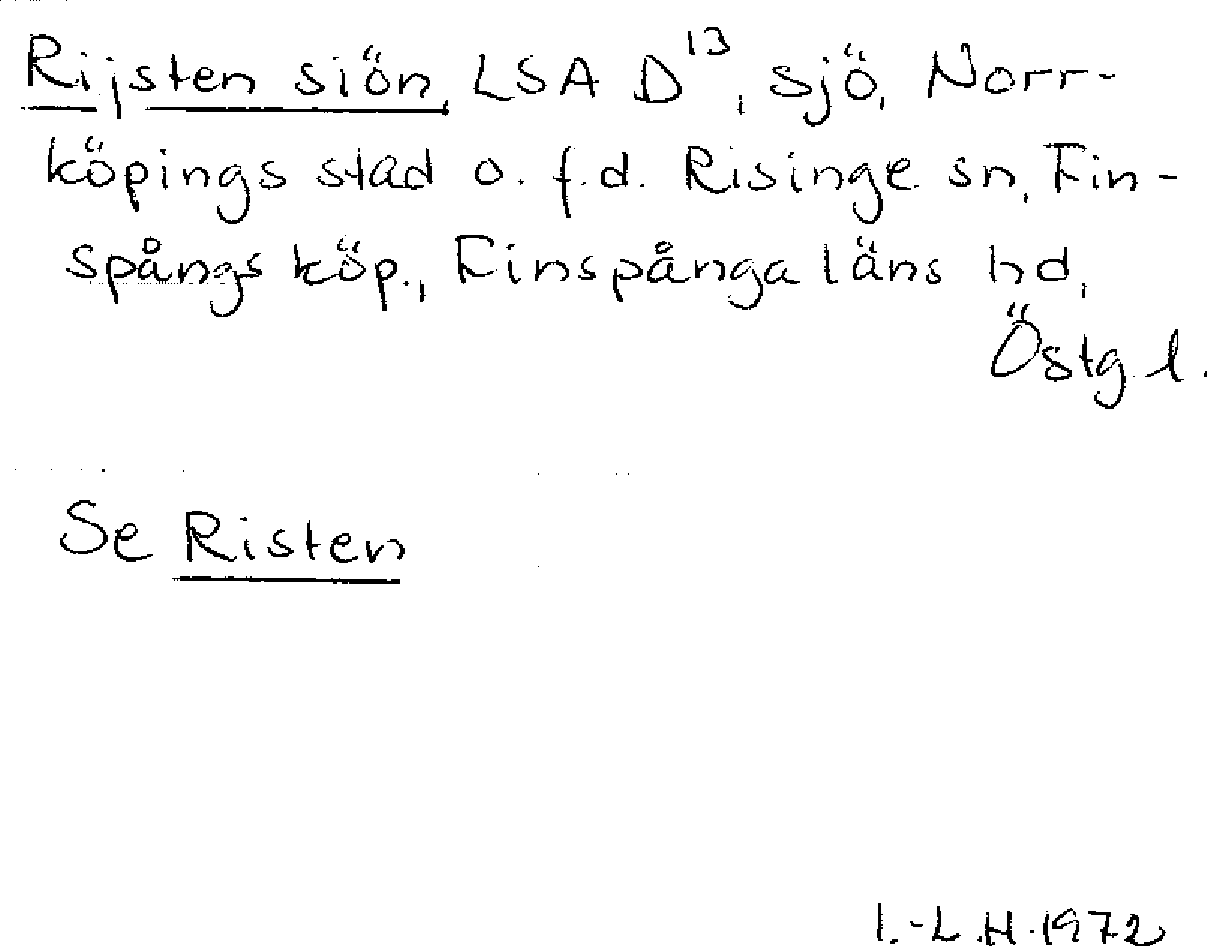 Rijsten siön, LSA D¹³, sjö, Norr-
köpings stad o. f.d. Risinge sn, Fin-
spångs köp., Finspånga läns hd,
Östg. l.
Se Risten
I.-L.H. 1972